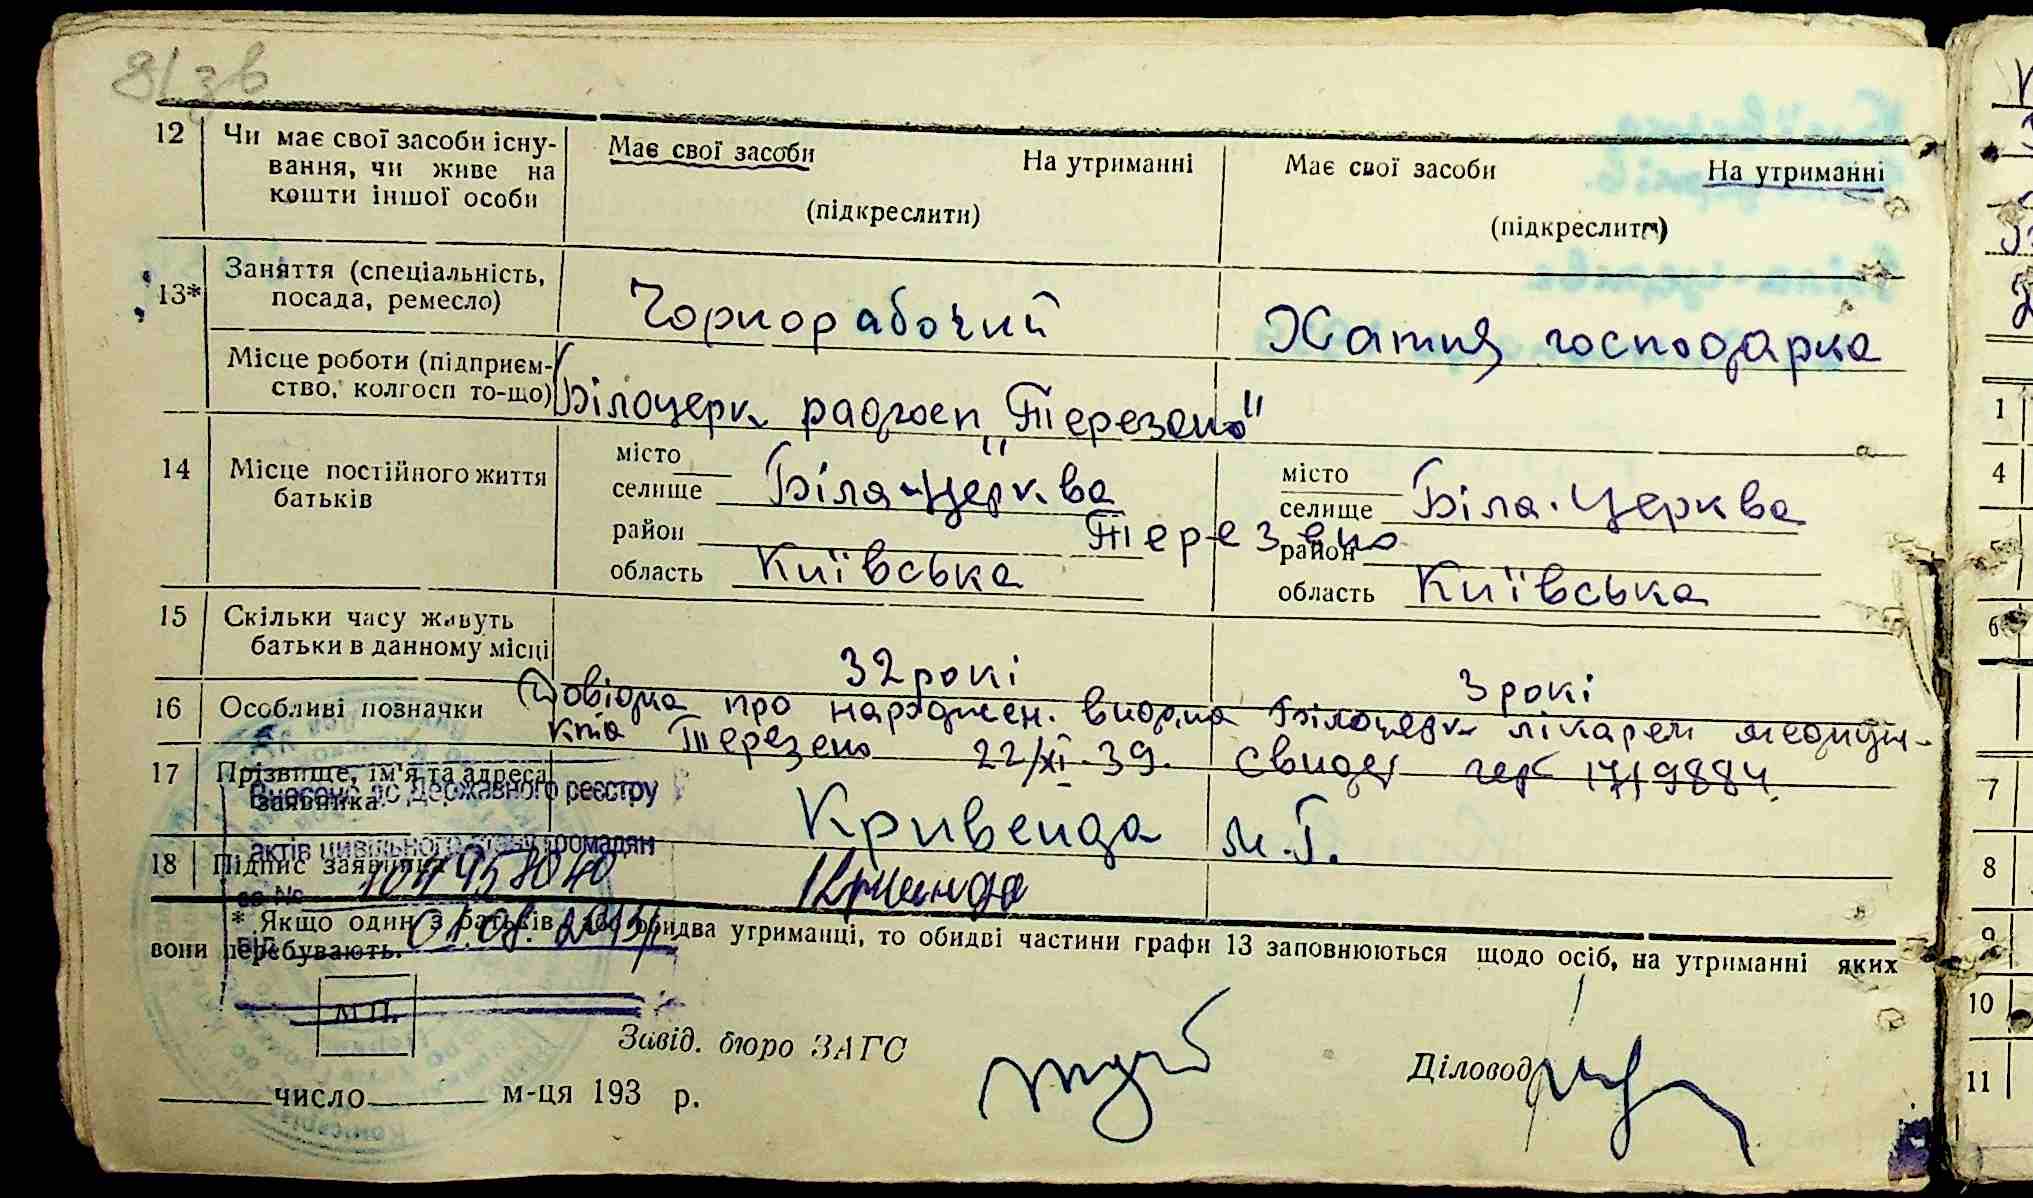 81зв
12 Чи має свої засоби існування, чи живе на кошти іншої особи Має свої засоби На утриманні (підкреслити) Має свої засоби На утриманні (підкреслити)
13* Заняття (спеціальність, посада, ремесло) Чорнорабочий Хатня господарка
Місце роботи (підприємство, колгосп то-що) Білоцерк. радгосп „Терезено"
14 Місце постійного життя батьків
місто
селище Біла-Церква
район Терезено
область Київська
місто
селище Біла-Церква
район
область Київська
15 Скільки часу живуть батьки в данному місці 32 рокі 3 рокі
16 Особливі позначки Довідка про народжен. видана Білоцерк лікарем
Терезено 22/XI-39. свидет 17/9884.
17 Прізвище, ім'я та адреса заявника Кривенда М.Г.
18 Підпис заявника Кривенда
Внесено до Державного реєстру
актів цивільного стану громадян
за №
від 01.08.
* Якщо один з батьків або обидва утриманці, то обидві частини графи 13 заповнюються щодо осіб, на утриманні яких
вони перебувають.
М.П.
Завід. бюро ЗАГС
Діловод
число м-ця 193 р.
1
4
5
6
7
8
9
10
11